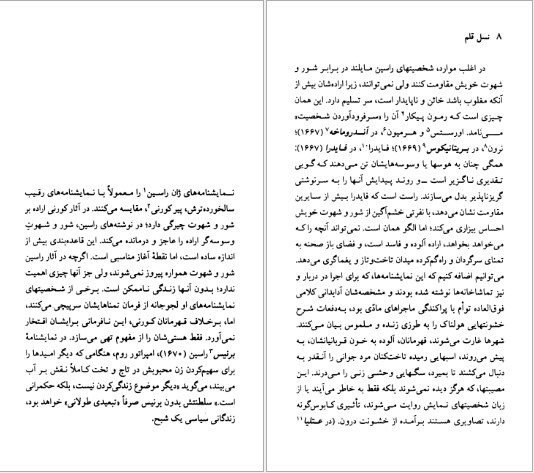 ۸ نسل قلم
در اغلب موارد، شخصیتهای راسین مایلند در برابر شور و
شهوت خویش مقاومت کنند ولی نمی‌توانند، زیرا اراده‌شان بیش از
آنکه مغلوب باشد خائن و ناپایدار است، سر تسلیم دارد. این همان
چیزی است که رمون پیکار۴ آن را «سرفرودآوردن شخصیت»
می‌نامد. اورستس۵ و هرمیون۶، در آندروماخه۷ (۱۶۶۷)؛
نرون۸، در بریتانیکوس۹ (۱۶۶۹)؛ فایدرا۱۰، در فایدرا (۱۶۷۷):
همگی چنان به هوسها یا وسوسه‌هایشان تن می‌دهند که گویی
تقدیری ناگزیر است ـ و روند پیدایش آنها را به سرنوشتی
گریزناپذیر بدل می‌سازند. راست است که فایدرا بیش از سایرین
مقاومت نشان می‌دهد، با نفرتی خشم‌آگین از شور و شهوت خویش
احساس بیزاری می‌کند؛ اما الگو همان است. نمی‌تواند آنچه را که
می‌خواهد بخواهد، اراده آلوده و فاسد است، و فضای باز صحنه به
تمنای سرگردان و راه‌گم‌کرده میدان تاخت‌وتاز و یغماگری می‌دهد.
می‌توانیم اضافه کنیم که این نمایشنامه‌ها، که برای اجرا در دربار و
نیز تماشاخانه‌ها نوشته شده بودند و مشخصه‌شان آدابدانی کلامی
فوق‌العاده توأم با پراکندگی ماجراهای مادّی بود، به‌دفعات شرح
خشونتهایی هولناک را به طرزی زنده و ملموس بیان می‌کنند.
شهرها غارت می‌شوند، قهرمانان، آلوده به خون قربانیانشان، به
پیش می‌روند، اسبهایی رمیده تاخت‌کنان مرد جوانی را آنقدر به
دنبال می‌کشند تا بمیرد، سگهایی وحشی زنی را می‌درند. این
مصیبتها، که هرگز دیده نمی‌شوند بلکه فقط به خاطر می‌آیند یا از
زبان شخصیتهای نمایش روایت می‌شوند، تأثیری کابوس‌گونه
دارند، تصاویری هستند برآمده از خشونت درون. (در عتلیا۱۱
نمایشنامه‌های ژان راسین۱ را معمولاً با نمایشنامه‌های رقیب
سالخورده‌ترش، پیر کورنی۲، مقایسه می‌کنند. در آثار کورنی اراده بر
شور و شهوت چیرگی دارد؛ در نوشته‌های راسین، شور و شهوتِ
وسوسه‌گر اراده را عاجز و درمانده می‌کند. این قاعده‌بندی بیش از
اندازه ساده است، اما نقطهٔ آغاز مناسبی است. اگرچه در آثار راسین
شور و شهوت همواره پیروز نمی‌شوند، ولی جز آنها چیزی اهمیت
ندارد؛ بدون آنها زندگی ناممکن است. برخی از شخصیتهای
نمایشنامه‌های او لجوجانه از فرمان تمناهایشان سرپیچی می‌کنند،
اما، برخلاف قهرمانان کورنی، این نافرمانی برایشان افتخار
نمی‌آورد. فقط هستی‌شان را از مفهوم تهی می‌سازد. در نمایشنامهٔ
برنیس۳ راسین (۱۶۷۰)، امپراتور روم، هنگامی که دیگر امیدها را
برای سهیم‌کردن زن محبوبش در تاج و تخت کاملاً نقش بر آب
می‌بیند، می‌گوید «دیگر موضوع زندگی‌کردن نیست، بلکه حکمرانی
است.» سلطنتش بدون برنیس صرفاً «تبعیدی طولانی» خواهد بود،
زندگانی سیاسی یک شبح.